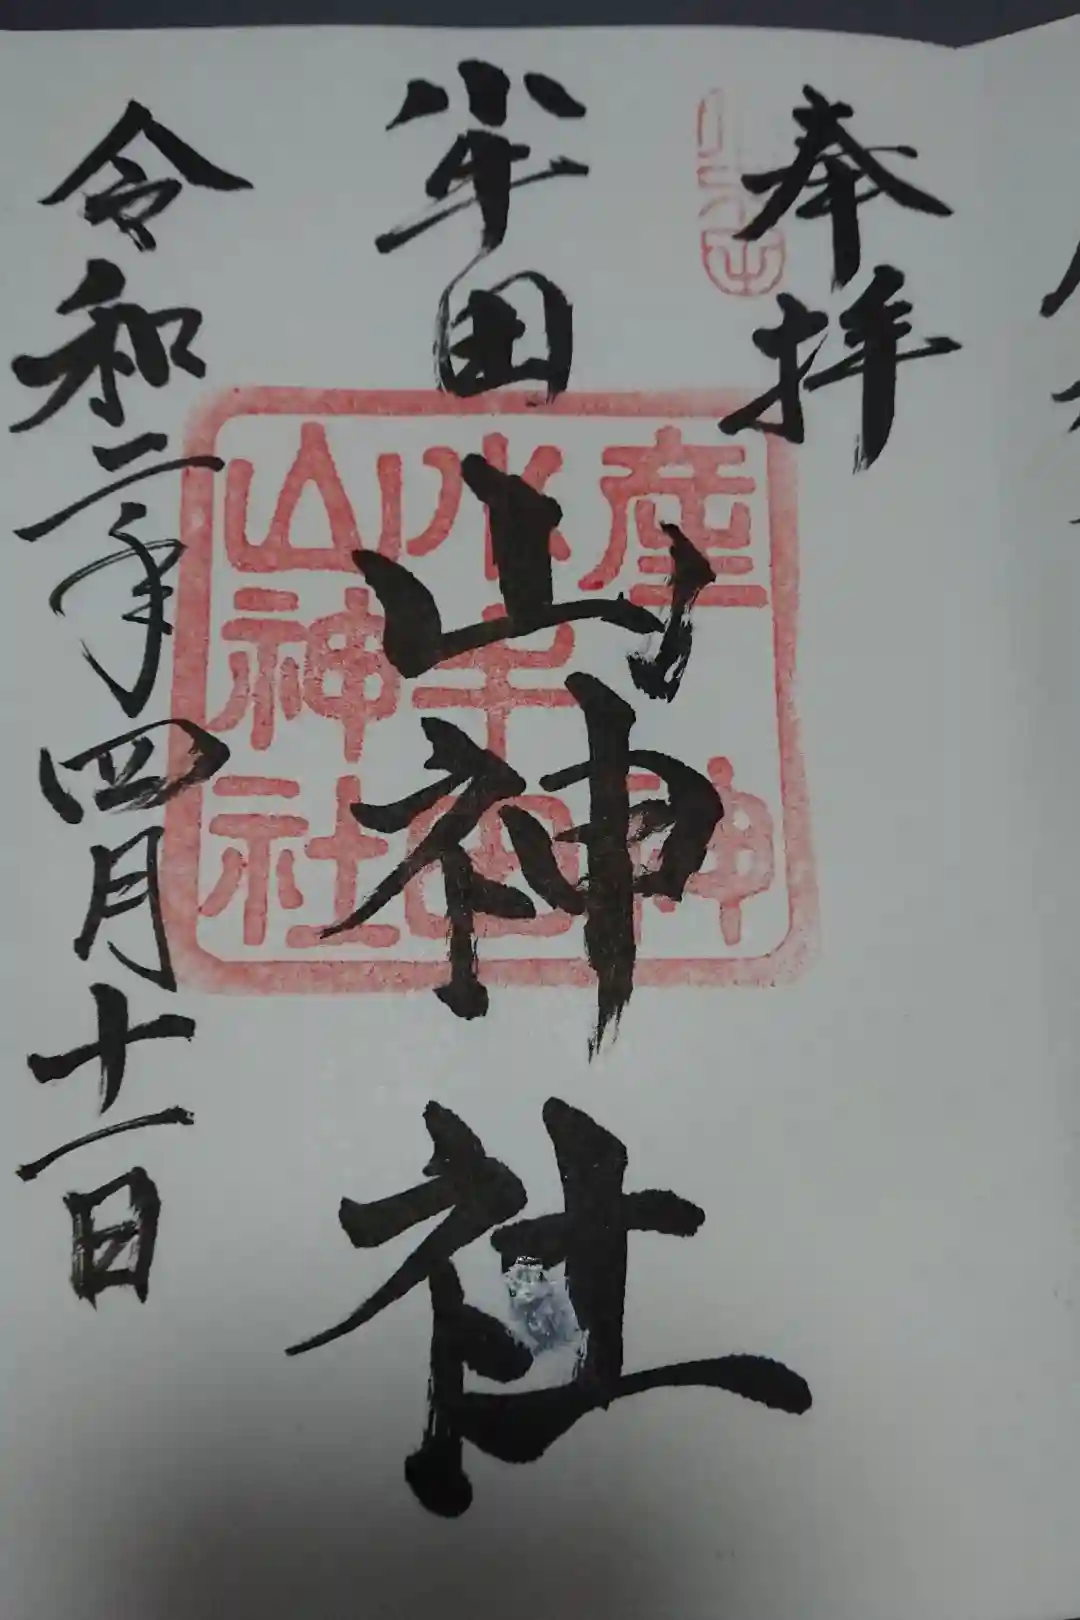 奉拝
小牛田山神社
令和二年四月十一日
産神
小牛田
山神社